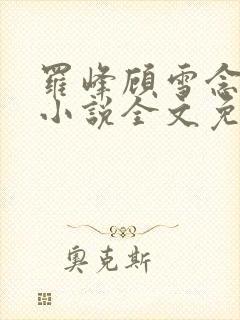 羅峰顧雪念
小說全文免
奧克斯